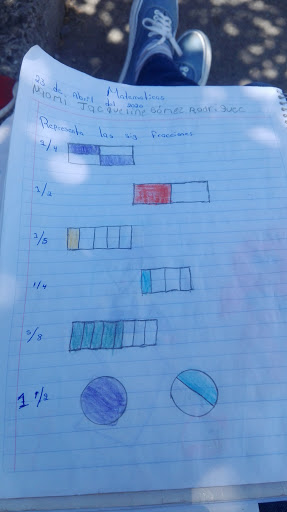 23 de Abril Matematicas
del 2020
Nyomi Jacqueline Gómez Rodriguez
Representa las sig fracciones
2/4
1/2
1/5
1/4
5/8
1 1/2